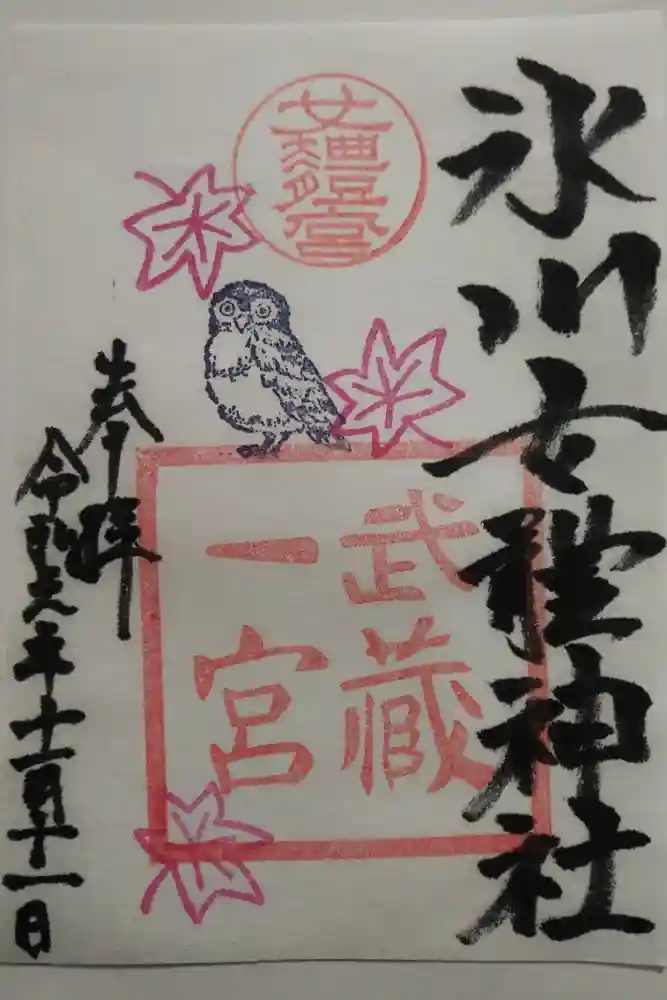 氷川女體神社
女體宮
武蔵
一宮
奉拝
令和六年十一月十一日